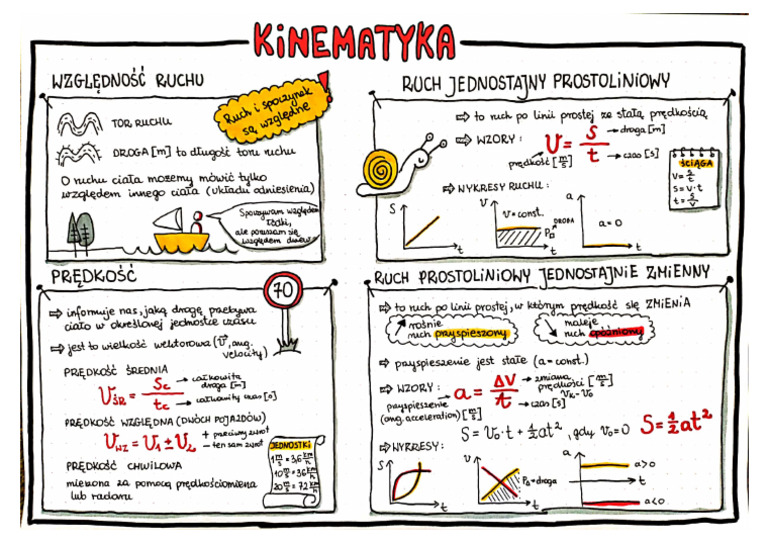 KINEMATYKA
WZGLĘDNOŚĆ RUCHU
Ruch i spoczynek
są względne
!
TOR RUCHU
DROGA [m] to długość toru ruchu
O ruchu ciała możemy mówić tylko
względem innego ciała (układu odniesienia)
Spoczywam względem
łódki,
ale poruszam się
względem drzew
RUCH JEDNOSTAJNY PROSTOLINIOWY
⇨ to ruch po linii prostej ze stałą prędkością
⇨ WZORY: v = s/t
droga [m]
prędkość [m/s]
czas [s]
ŚCIĄGA
v = s/t
s = v·t
t = s/v
⇨ WYKRESY RUCHU:
s t
v v = const. Po DROGA t
a a = 0 t
PRĘDKOŚĆ
70
⇨ informuje nas, jaką drogę przebywa
ciało w określonej jednostce czasu
⇨ jest to wielkość wektorowa (v, ang.
velocity)
PRĘDKOŚĆ ŚREDNIA
VŚR = Sc/tc
całkowita
droga [m]
całkowity czas [s]
PRĘDKOŚĆ WZGLĘDNA (DWÓCH POJAZDÓW)
VWZ = V1 ± V2
+ przeciwny zwrot
- ten sam zwrot
PRĘDKOŚĆ CHWILOWA
mierzona za pomocą prędkościomierza
lub radaru
JEDNOSTKI
1 m/s = 3,6 km/h
10 m/s = 36 km/h
20 m/s = 72 km/h
RUCH PROSTOLINIOWY JEDNOSTAJNIE ZMIENNY
⇨ to ruch po linii prostej, w którym prędkość się ZMIENIA
rośnie
ruch przyspieszony
maleje
ruch opóźniony
⇨ przyspieszenie jest stałe (a = const.)
⇨ WZORY: a = ΔV/t
zmiana
prędkości [m/s]
Vk-V0
czas [s]
przyspieszenie
(ang. acceleration) [m/s²]
S = V0·t + ½at², gdy V0=0 S = ½at²
⇨ WYKRESY:
s t
v Po = droga t
a a>0 t
a<0